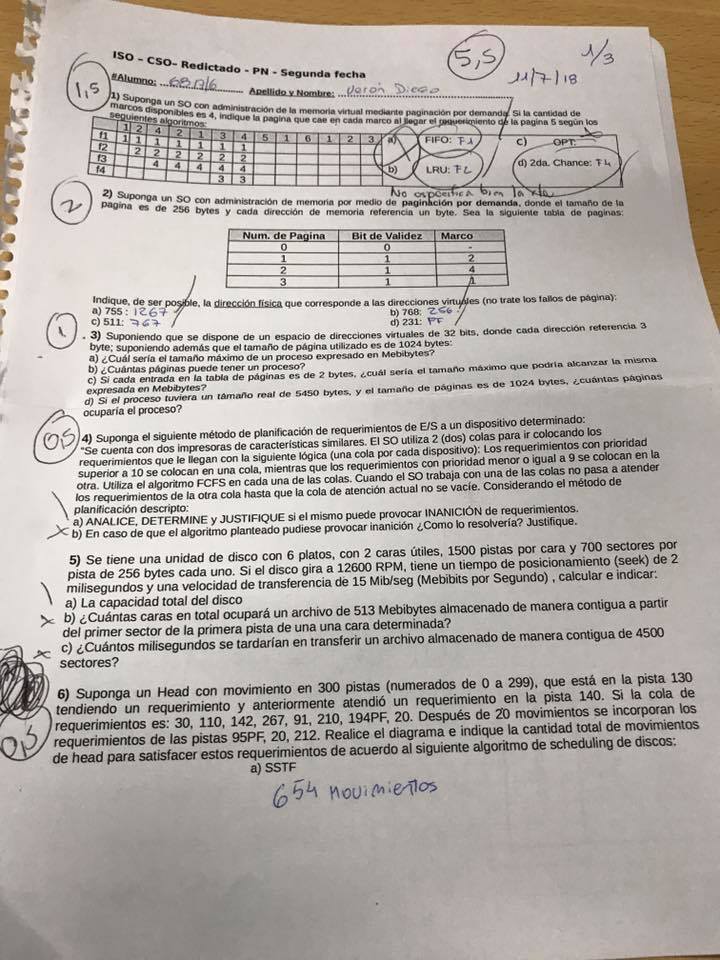 5,5
1/3
11/7/18
ISO - CSO- Redictado - PN - Segunda fecha
#Alumno: Apellido y Nombre: Diego
1,5
1) Suponga un SO con administración de la memoria virtual mediante paginación por demanda. Si la cantidad de
marcos disponibles es 4, indique la pagina que cae en cada marco al llegar el requerimiento de la pagina 5 según los
seguientes algoritmos:
1 2 4 2 1 3 4 5 1 6 1 2 3
f1 1 1 1 1 1 1 1
f2 2 2 2 2 2 2
f3 4 4 4 4 4
f4 3 3
a) FIFO: F1
c) OPT:
b) LRU: F2
d) 2da. Chance: F4
No especifica bien la
2
2) Suponga un SO con administración de memoria por medio de paginación por demanda, donde el tamaño de la
pagina es de 256 bytes y cada dirección de memoria referencia un byte. Sea la siguiente tabla de paginas:
Num. de Pagina Bit de Validez Marco
0 0 -
1 1 2
2 1 4
3 1 1
Indique, de ser posible, la dirección física que corresponde a las direcciones virtuales (no trate los fallos de página):
a) 755 : 1267 b) 768: 256
c) 511: 767 d) 231: PF
1
3) Suponiendo que se dispone de un espacio de direcciones virtuales de 32 bits, donde cada dirección referencia 3
byte; suponiendo además que el tamaño de página utilizado es de 1024 bytes:
a) ¿Cuál sería el tamaño máximo de un proceso expresado en Mebibytes?
b) ¿Cuántas páginas puede tener un proceso?
c) Si cada entrada en la tabla de páginas es de 2 bytes, ¿cuál sería el tamaño máximo que podría alcanzar la misma
expresada en Mebibytes?
d) Si el proceso tuviera un tamaño real de 5450 bytes, y el tamaño de páginas es de 1024 bytes, ¿cuántas páginas
ocuparía el proceso?
0,5
4) Suponga el siguiente método de planificación de requerimientos de E/S a un dispositivo determinado:
"Se cuenta con dos impresoras de características similares. El SO utiliza 2 (dos) colas para ir colocando los
requerimientos que le llegan con la siguiente lógica (una cola por cada dispositivo): Los requerimientos con prioridad
superior a 10 se colocan en una cola, mientras que los requerimientos con prioridad menor o igual a 9 se colocan en la
otra. Utiliza el algoritmo FCFS en cada una de las colas. Cuando el SO trabaja con una de las colas no pasa a atender
los requerimientos de la otra cola hasta que la cola de atención actual no se vacíe. Considerando el método de
planificación descripto:
a) ANALICE, DETERMINE y JUSTIFIQUE si el mismo puede provocar INANICIÓN de requerimientos.
b) En caso de que el algoritmo planteado pudiese provocar inanición ¿Como lo resolvería? Justifique.
5) Se tiene una unidad de disco con 6 platos, con 2 caras útiles, 1500 pistas por cara y 700 sectores por
pista de 256 bytes cada uno. Si el disco gira a 12600 RPM, tiene un tiempo de posicionamiento (seek) de 2
milisegundos y una velocidad de transferencia de 15 Mib/seg (Mebibits por Segundo) , calcular e indicar:
a) La capacidad total del disco
b) ¿Cuántas caras en total ocupará un archivo de 513 Mebibytes almacenado de manera contigua a partir
del primer sector de la primera pista de una una cara determinada?
c) ¿Cuántos milisegundos se tardarían en transferir un archivo almacenado de manera contigua de 4500
sectores?
0,5
6) Suponga un Head con movimiento en 300 pistas (numerados de 0 a 299), que está en la pista 130
tendiendo un requerimiento y anteriormente atendió un requerimiento en la pista 140. Si la cola de
requerimientos es: 30, 110, 142, 267, 91, 210, 194PF, 20. Después de 20 movimientos se incorporan los
requerimientos de las pistas 95PF, 20, 212. Realice el diagrama e indique la cantidad total de movimientos
de head para satisfacer estos requerimientos de acuerdo al siguiente algoritmo de scheduling de discos:
a) SSTF
654 movimientos